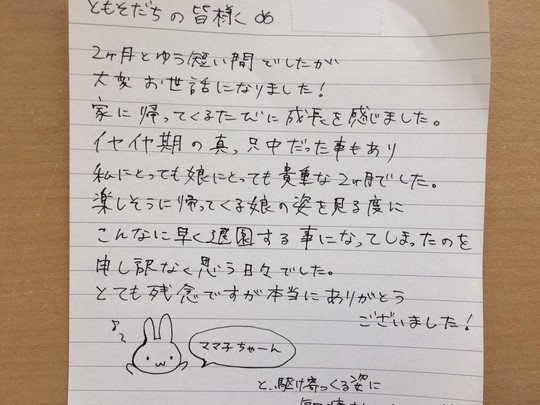 ともそだちの皆様へ
2ヶ月とゆう短い間でしたが
大変お世話になりました!
家に帰ってくるたびに成長を感じました。
イヤイヤ期の真っ只中だった事もあり
私にとっても娘にとっても貴重な2ヶ月でした。
楽しそうに帰ってくる娘の姿を見る度に
こんなに早く退園する事になってしまったのを
申し訳なく思う日々でした。
とても残念ですが本当にありがとう
ございました!
ママ子ちゃーん
と、駆け寄っくる姿に